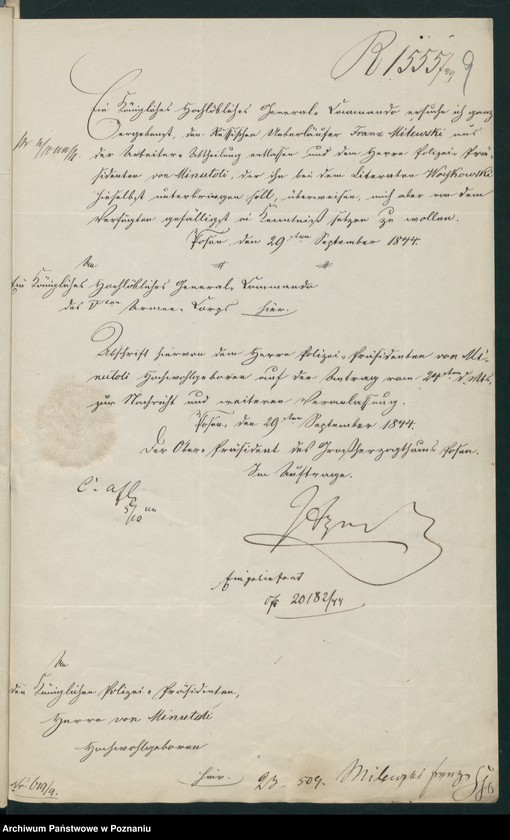 R 1555/44
9
Ein Königliches Hochlöbliches General-Commando ersuche ich ganz
ergebenst, den Russischen Ueberläufer Franz Milewski aus
der Arbeiter-Abtheilung entlassen und dem Herrn Polizei-Prä-
sidenten von Minutoli, der ihn bei dem Literaten Woykowski
hieselbst unterbringen soll, überweisen, mich aber von dem
Verfügten gefälligst in Kenntniß setzen zu wollen.
Posen, den 29sten September 1844.
An
Ein Königliches Hochlöbliches General-Commando
des Vten Armee-Corps hier.
Abschrift hiervon dem Herrn Polizei-Präsidenten von Mi-
nutoli Hochwohlgeboren auf den Antrag vom 24sten d. Mts.
zur Nachricht und weiteren Veranlassung.
Posen, den 29sten September 1844.
Der Ober-Präsident des Großherzogthums Posen.
Im Auftrage.
20182/44
An
den Königlichen Polizei-Präsidenten,
Herrn von Minutoli
Hochwohlgeboren
hier.
23 509. Milewski Franz
Archiwum Państwowe w Poznaniu